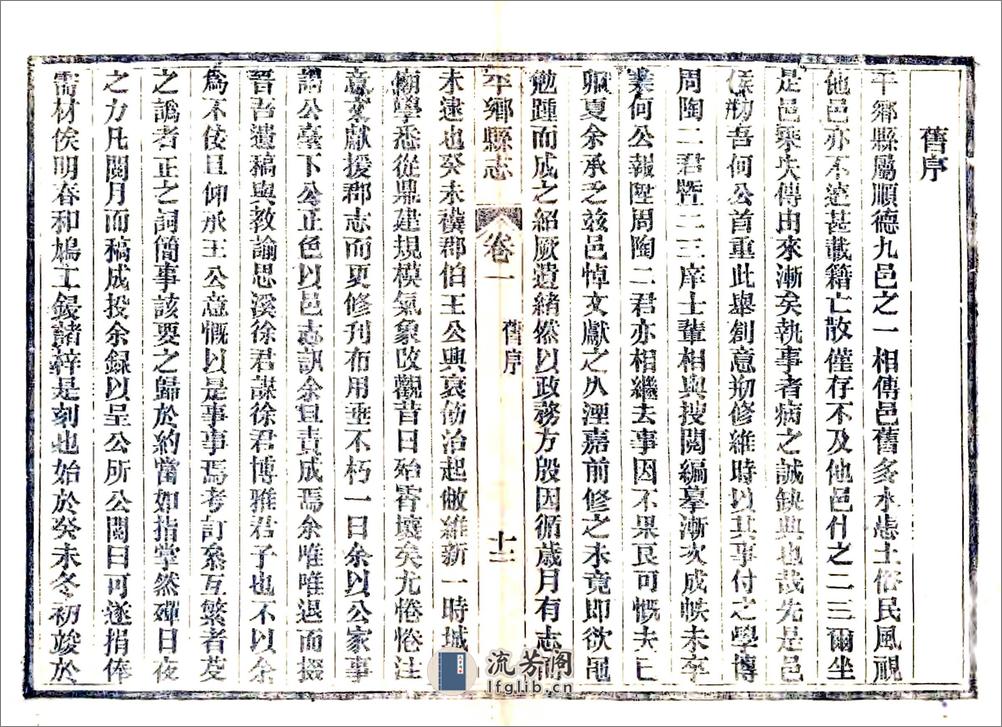 舊序
平鄉縣屬順德九邑之一相傳邑舊多水患土俗民風視
他邑亦不遠甚載籍亡散僅存不及他邑什之二三爾坐
是邑乘失傳由來漸矣執事者病之誠缺典也哉先是邑
侯切吾何公首重此舉創意剏修維時以其事付之學博
周陶二君曁二三庠士輩相與搜閱編摹漸次成帙未卒
業何公報陞周陶二君亦相繼去事因不果良可慨夫己
卯夏余承乏茲邑悼文獻之久湮嘉前修之未竟即欲黽
勉踵而成之紹厥遺緒然以政務方殷因循歲月有志
平鄉縣志
卷一
舊序
十二
未逮也癸未穫郡伯王公興衰飭治起敝維新一時城
廟學悉從鼎建規模氣象改觀昔日殆霄壤矣尤惓惓注
意文獻援郡志而更修刊布用垂不朽一日余以公家事
謁公臺下公正色以邑志訊余且責成焉余唯唯退而掇
吾吾遺稿與教諭思溪徐君謀徐君博雅君子也不以余
爲不佞且仰承王公意慨以是事事焉考訂叅互繁者芟
之譌者正之詞簡事該要之歸於約當如指掌然殫日夜
之力凡閱月而稿成投余録以呈公所公閱曰可遂捐俸
需材俟明春和鳩工鋟諸梓是刻也始於癸未冬初竣於
流芳閣
lfglib.cn